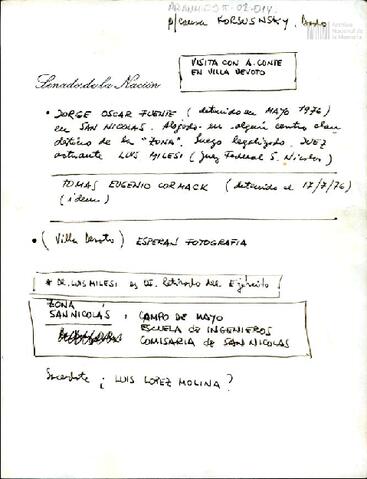 Archivo
Nacional de
la Memoria
p/causa KORSUNSKY,
VISITA CON A. CONTE
EN VILLA DEVOTO
Senado de la Nación
• JORGE OSCAR FUENTE (detenido en MAYO 1976)
en SAN NICOLAS. Alojado en algún centro clan
destino de la "ZONA". Luego legalizado. JUEZ
actuante LUIS MILESI (Juez Federal S. Nicolas)
TOMAS EUGENIO CORMACK (detenido el 17/7/76)
(idem)
• (Villa Devoto) ESPERAN FOTOGRAFIA
* DR. LUIS MILESI es Of. Retirado del Ejército
ZONA
SAN NICOLÁS : CAMPO DE MAYO
ESCUELA DE INGENIEROS
COMISARIA DE SAN NICOLAS
Sacerdote ¿ LUIS LOPEZ MOLINA?